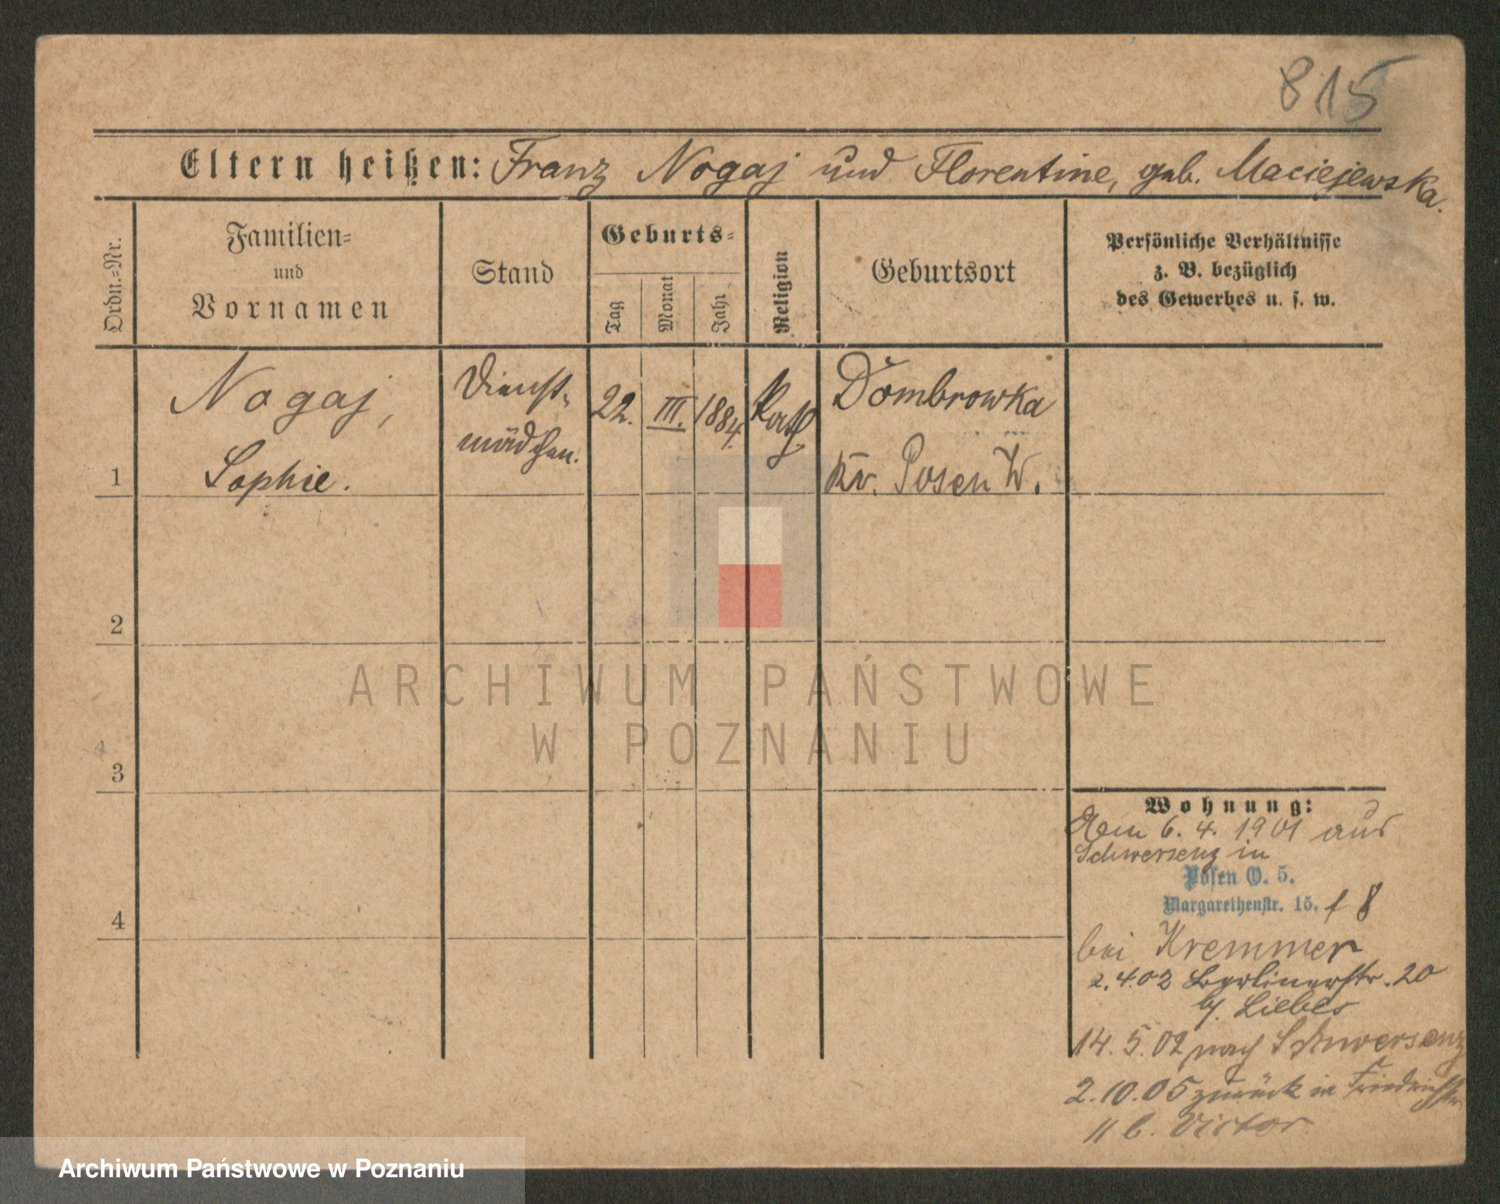 815
Eltern heißen: Franz Nogaj und Florentine, geb. Maciejewska.
Ordn.-Nr.
Familien-
und
Vornamen
Stand
Geburts-
Tag
Monat
Jahr
Religion
Geburtsort
Persönliche Verhältnisse
z. B. bezüglich
des Gewerbes u. s. w.
1
Nogaj,
Sophie.
Dienst-
mädchen.
22.
III.
1884.
Kath.
Dombrowka
Kr. Posen W.
2
3
4
Wohnung:
Am 6. 4. 1901 aus
Schwersenz in
Posen O. 5.
Margarethenstr. 15. 8
bei Kremmer
2.4.02 Berlinerstr. 20
b. Liebes
14. 5. 02 nach Schwersenz
2. 10. 05 zurück in Friedrichstr.
11 b. Victor
ARCHIWUM PAŃSTWOWE
W POZNANIU
Archiwum Państwowe w Poznaniu